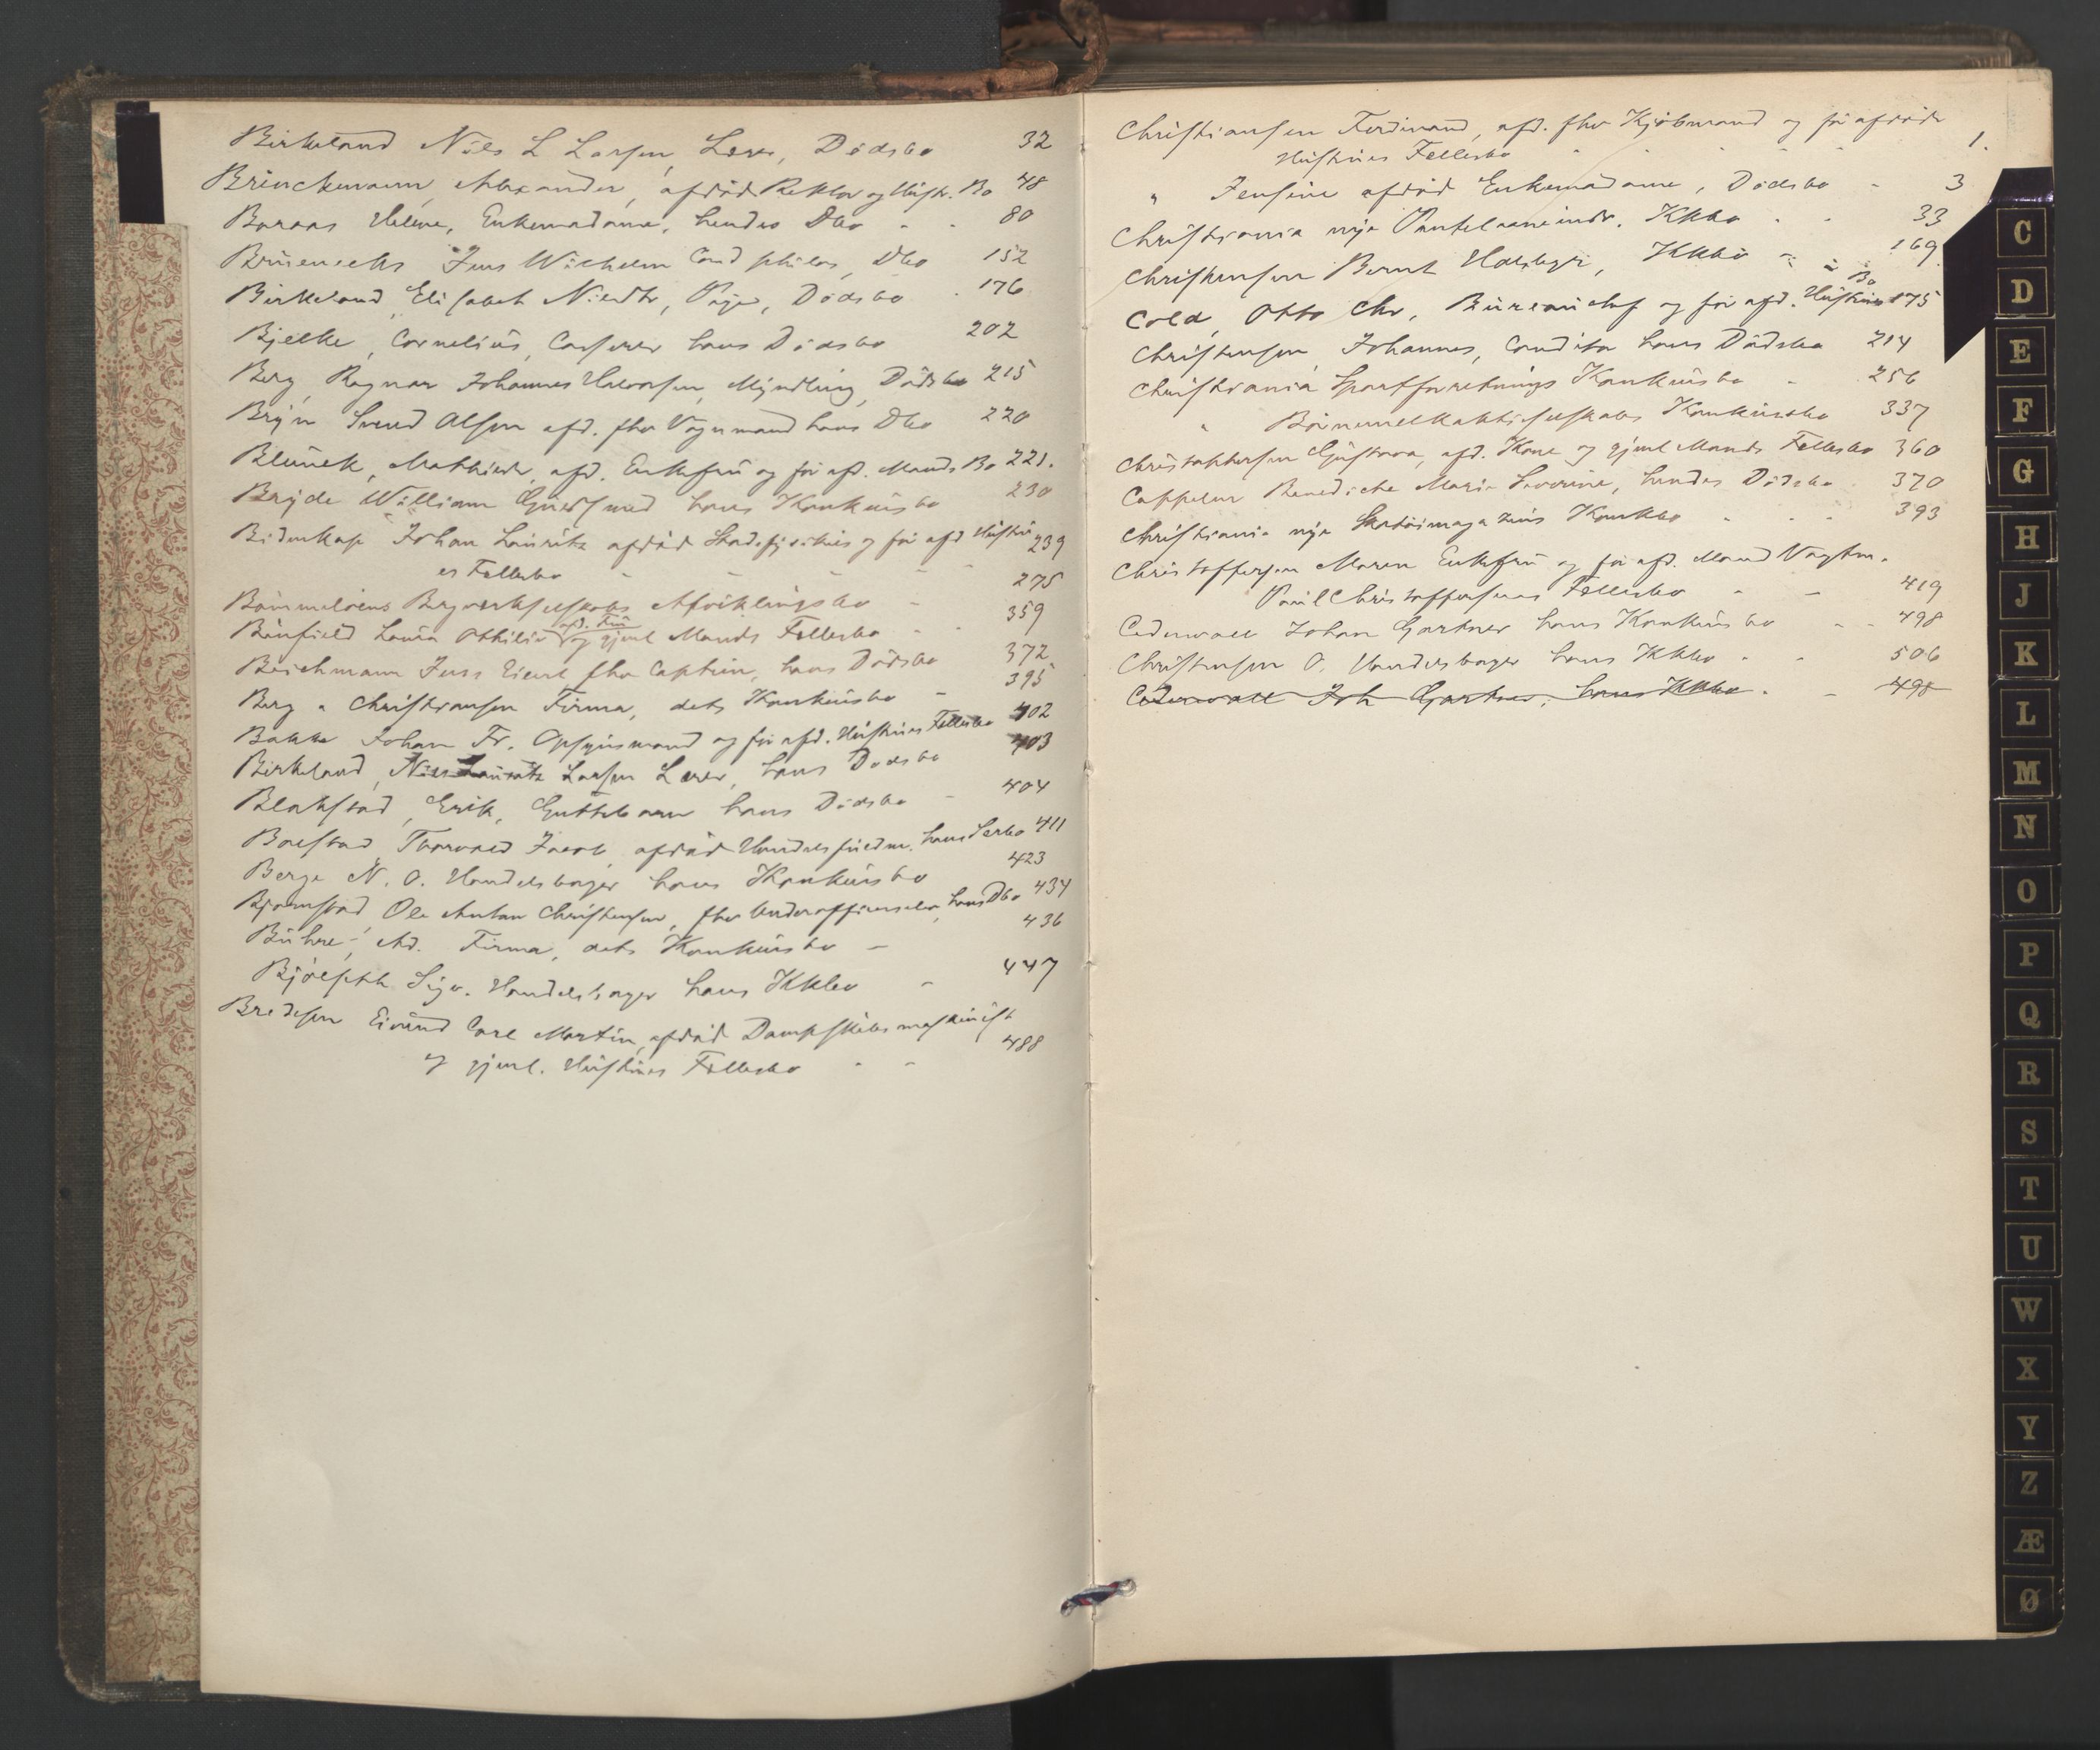 Birkeland Nils L Larsen, Lærer, Dødsbo 32
Brinckmann, Alexander, afdød Rektor og Hustr. Bo 48
Boraas Helene, Enkemadame, hendes Dbo - - 80
Jens Wilhelm Cand philos, Dbo 152
Birkeland, Elisabet Nilsdtr, Pige, Dødsbo . 176
Bjelke, Cornelius, Casserer hans Dødsbo 202
Berg, Ragnar Johannes Halvorsen, Myndling, Dødsbo 215
Bryn Svend Olsen afd. fhv Vognmand hans Dbo 220
Mathilde, afd. Enkefru og før afd. Mands Bo 221.
Bryde William Konkursbo 230
Bidenkap Johan Lauritz afdød Stadsfysikus og før afd Hustru 239
es Fællesbo - - - - -
Bømmeløens Bergverksselskabs Afviklingsbo - 275
Laura Othilie afd. Fru og gjenl Mands Fællesbo - - 359
Beichmann Jess fhv Captein, hans Dødsbo 372
Berg & Christiansen Firma, dets Konkursbo - 395
Bakke Johan Fr. Opsynsmand og før afd. Hustrues Fællesbo 402
Birkeland, Nils Lauritz Larsen Lærer, hans Dødsbo 403
Blakstad, Erik, Guttebarn hans Dødsbo - 404
Bolstad Thorvald Jacob, afdød Handelsfuldm. hans 411
Berge N. O. Handelsborger hans Konkursbo 423
Bjørnstad Ole Anton Christensen, fhv Underofficerselev, hans Dbo 434
Ad. Firma, dets Konkursbo - 436
Sigv. Handelsborger hans Kkbo - 447
Bredesen Eivind Carl Martin, afdød Dampskibsmaskinist
og gjenl. Hustrues Fællesbo - - 488
Christiansen Ferdinand, afd. fhv Kjøbmand og før afdøde
Hustrues Fællesbo - - - - - 1.
" Jensine afdød Enkemadame, Dødsbo - 3
Christiania nye Pantelaaneindr. Kkbo - - 33
Christensen Bernt Halsbyr, Kkbo - - 169
Cold, Otto Chr, Bureauchef og før afd. Hustrues Bo 175
Christensen Johannes, Conditor hans Dødsbo 214
Christiania Sportsforretnings Konkursbo - 256
" Konkursbo 337
Christophersen Gustava, afd. Kone og gjenl Mands Fællesbo 360
Cappelen Benedicte Marie Severine, hendes Dødsbo 370
Christiania nye Skotøimagazins Konkbo - - - 393
Christoffersen Maren Enkefru og før afd. Mand Vagtm.
Paul Christoffersens Fællesbo - - 419
Cederwall Johan Gartner hans Konkursbo - - 498
Christensen O. Handelsborger hans Kkbo - - 506
Cederwall Joh Gartner, hans Kkbo - - 498
C
D
E
F
G
H
J
K
L
M
N
O
P
Q
R
S
T
U
W
X
Y
Z
Æ
Ø